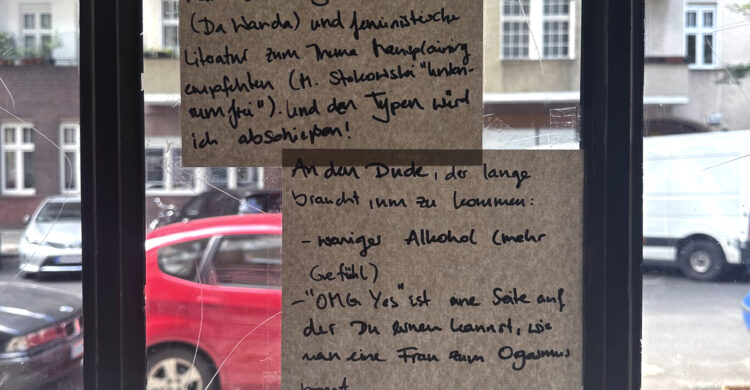 (Da Wanda) und feministische
Literatur zum Thema Mansplaining
empfehlen (M. Stokowski "Unten-
rum frei"). Und den Typen würd
ich abschießen!
An den Dude, der lange
braucht um zu kommen:
- weniger Alkohol (mehr
Gefühl)
- "OMG Yes" ist eine Seite auf
der Du lernen kannst, wie
man eine Frau zum Ogasmus